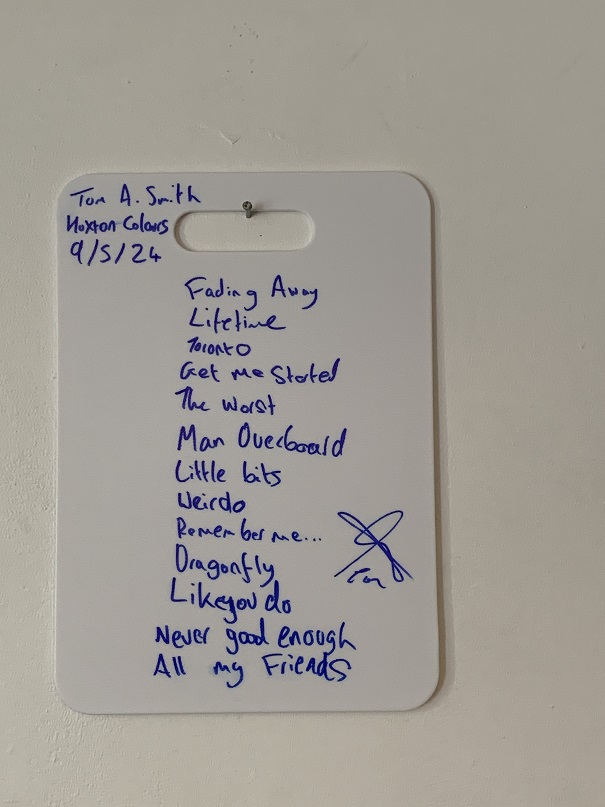 Tom A. Smith
Hoxton Colours
9/5/24
Fading Away
Lifetime
Toronto
Get me Started
The Worst
Man Overboard
Little bits
Weirdo
Remember me...
Dragonfly
Like you do
Never good enough
All my Friends
Tom